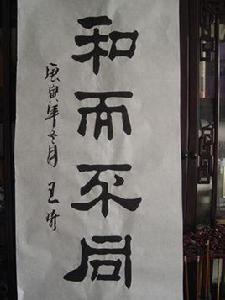 和而不同
庚寅年冬月 王昕